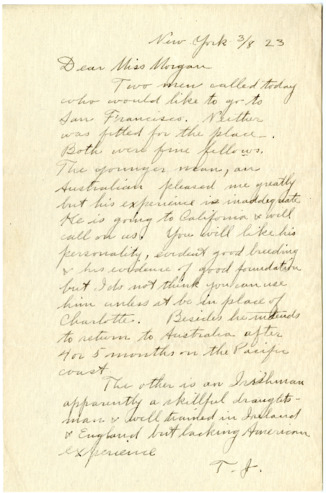 New York 3/8 23
Dear Miss Morgan
Two men called today
who would like to go to
San Francisco. Neither
was fitted for the place.
Both were fine fellows.
The younger man, an
Australian pleased me greatly
but his experience is inadequate
He is going to California & will
call on us. You will like his
personality, evident good breeding
& his evidence of good foundation
but I do not think you can use
him unless it be in place of
Charlotte. Besides he intends
to return to Australia after
4 or 5 months on the Pacific
coast
The other is an Irishman
apparently a skillful draughts-
man & well trained in Ireland
& England but lacking American
experience
T. J.